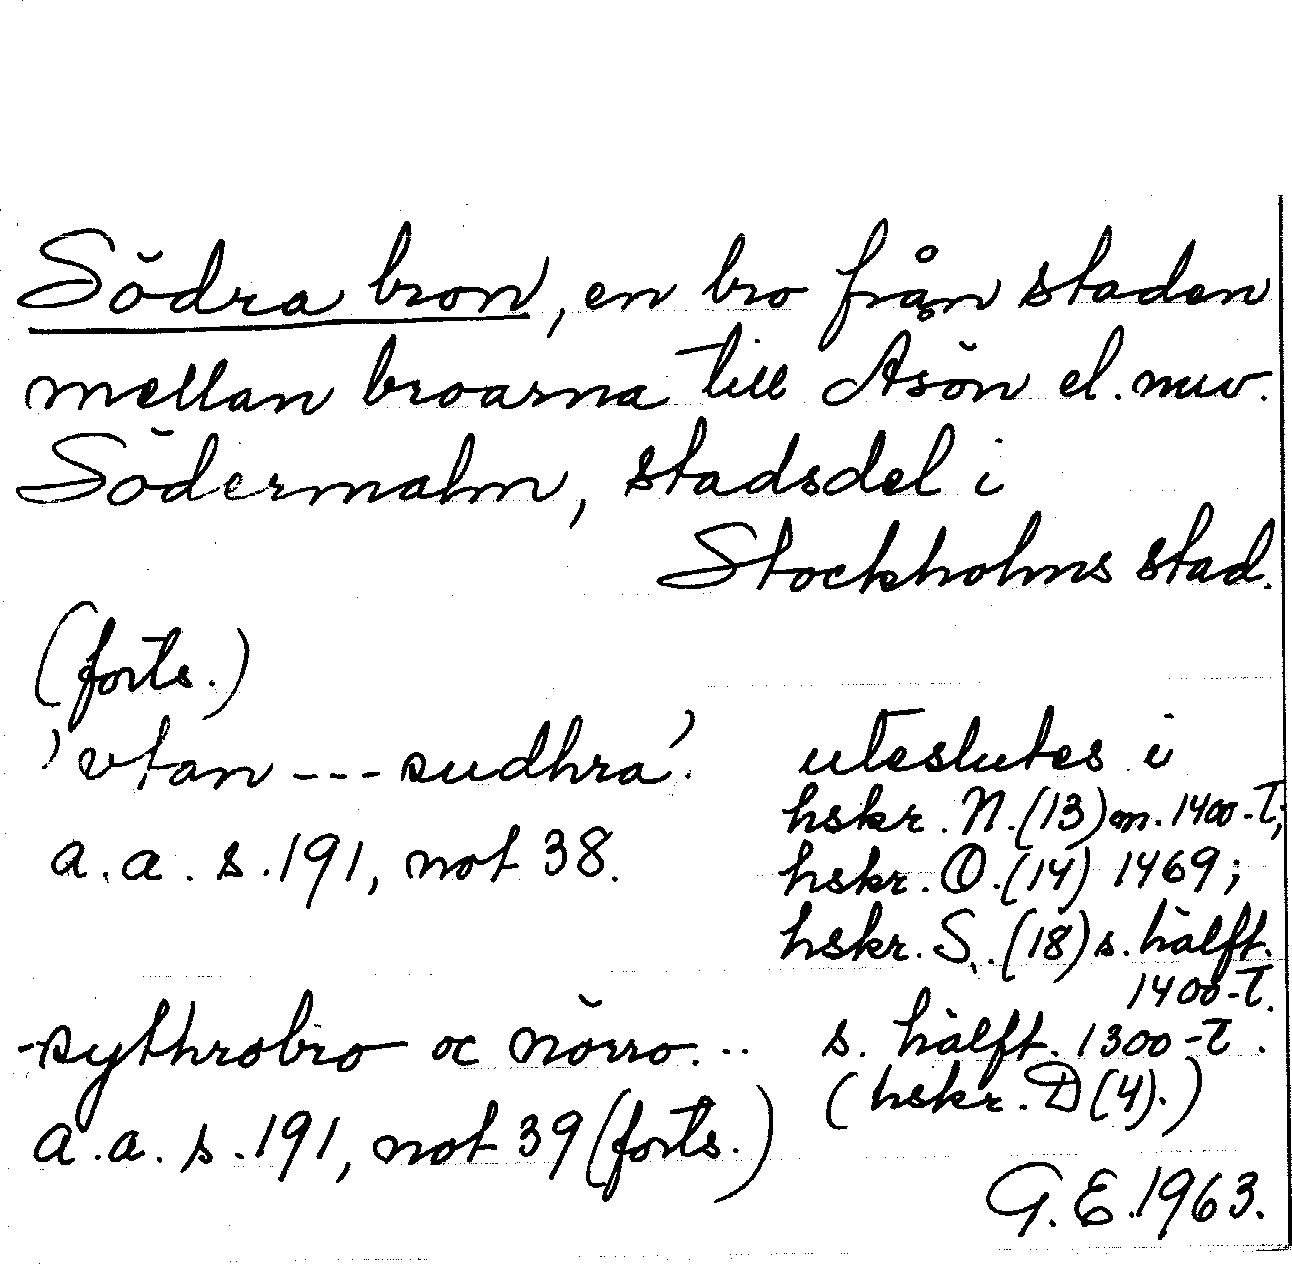 Södra bron, en bro från staden
mellan broarna till Åsön el. nuv.
Södermalm, stadsdel i
Stockholms stad.
(forts.)
'vtan --- sudhra'. uteslutes i
hskr. N. (13) m. 1400-t;
a. a. s. 191, not 38. hskr. O. (14) 1469;
hskr. S. (18) s. hälft.
1400-t.
-sythrobro oc nörro... s. hälft. 1300-t.
(hskr. D (4).)
a. a. s. 191, not 39 (forts.)
G. E. 1963.